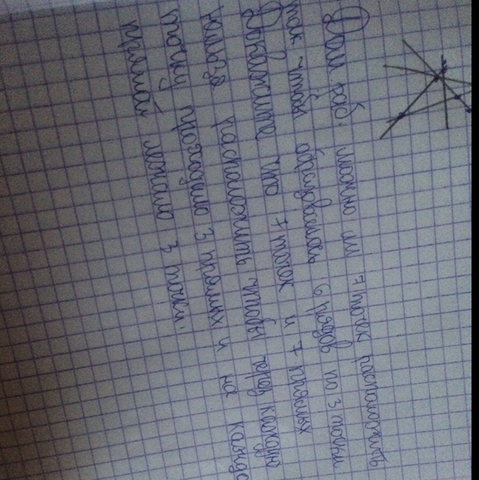 Дом раб. можно ли 7 точек расположить
так чтобы образовалось 6 рядов по 3 точки
Докажите что 7 точек и 7 прямых
нельзя расположить чтобы через каждую
точку проходило 3 прямых и на каждо
прямой лежало 3 точки.